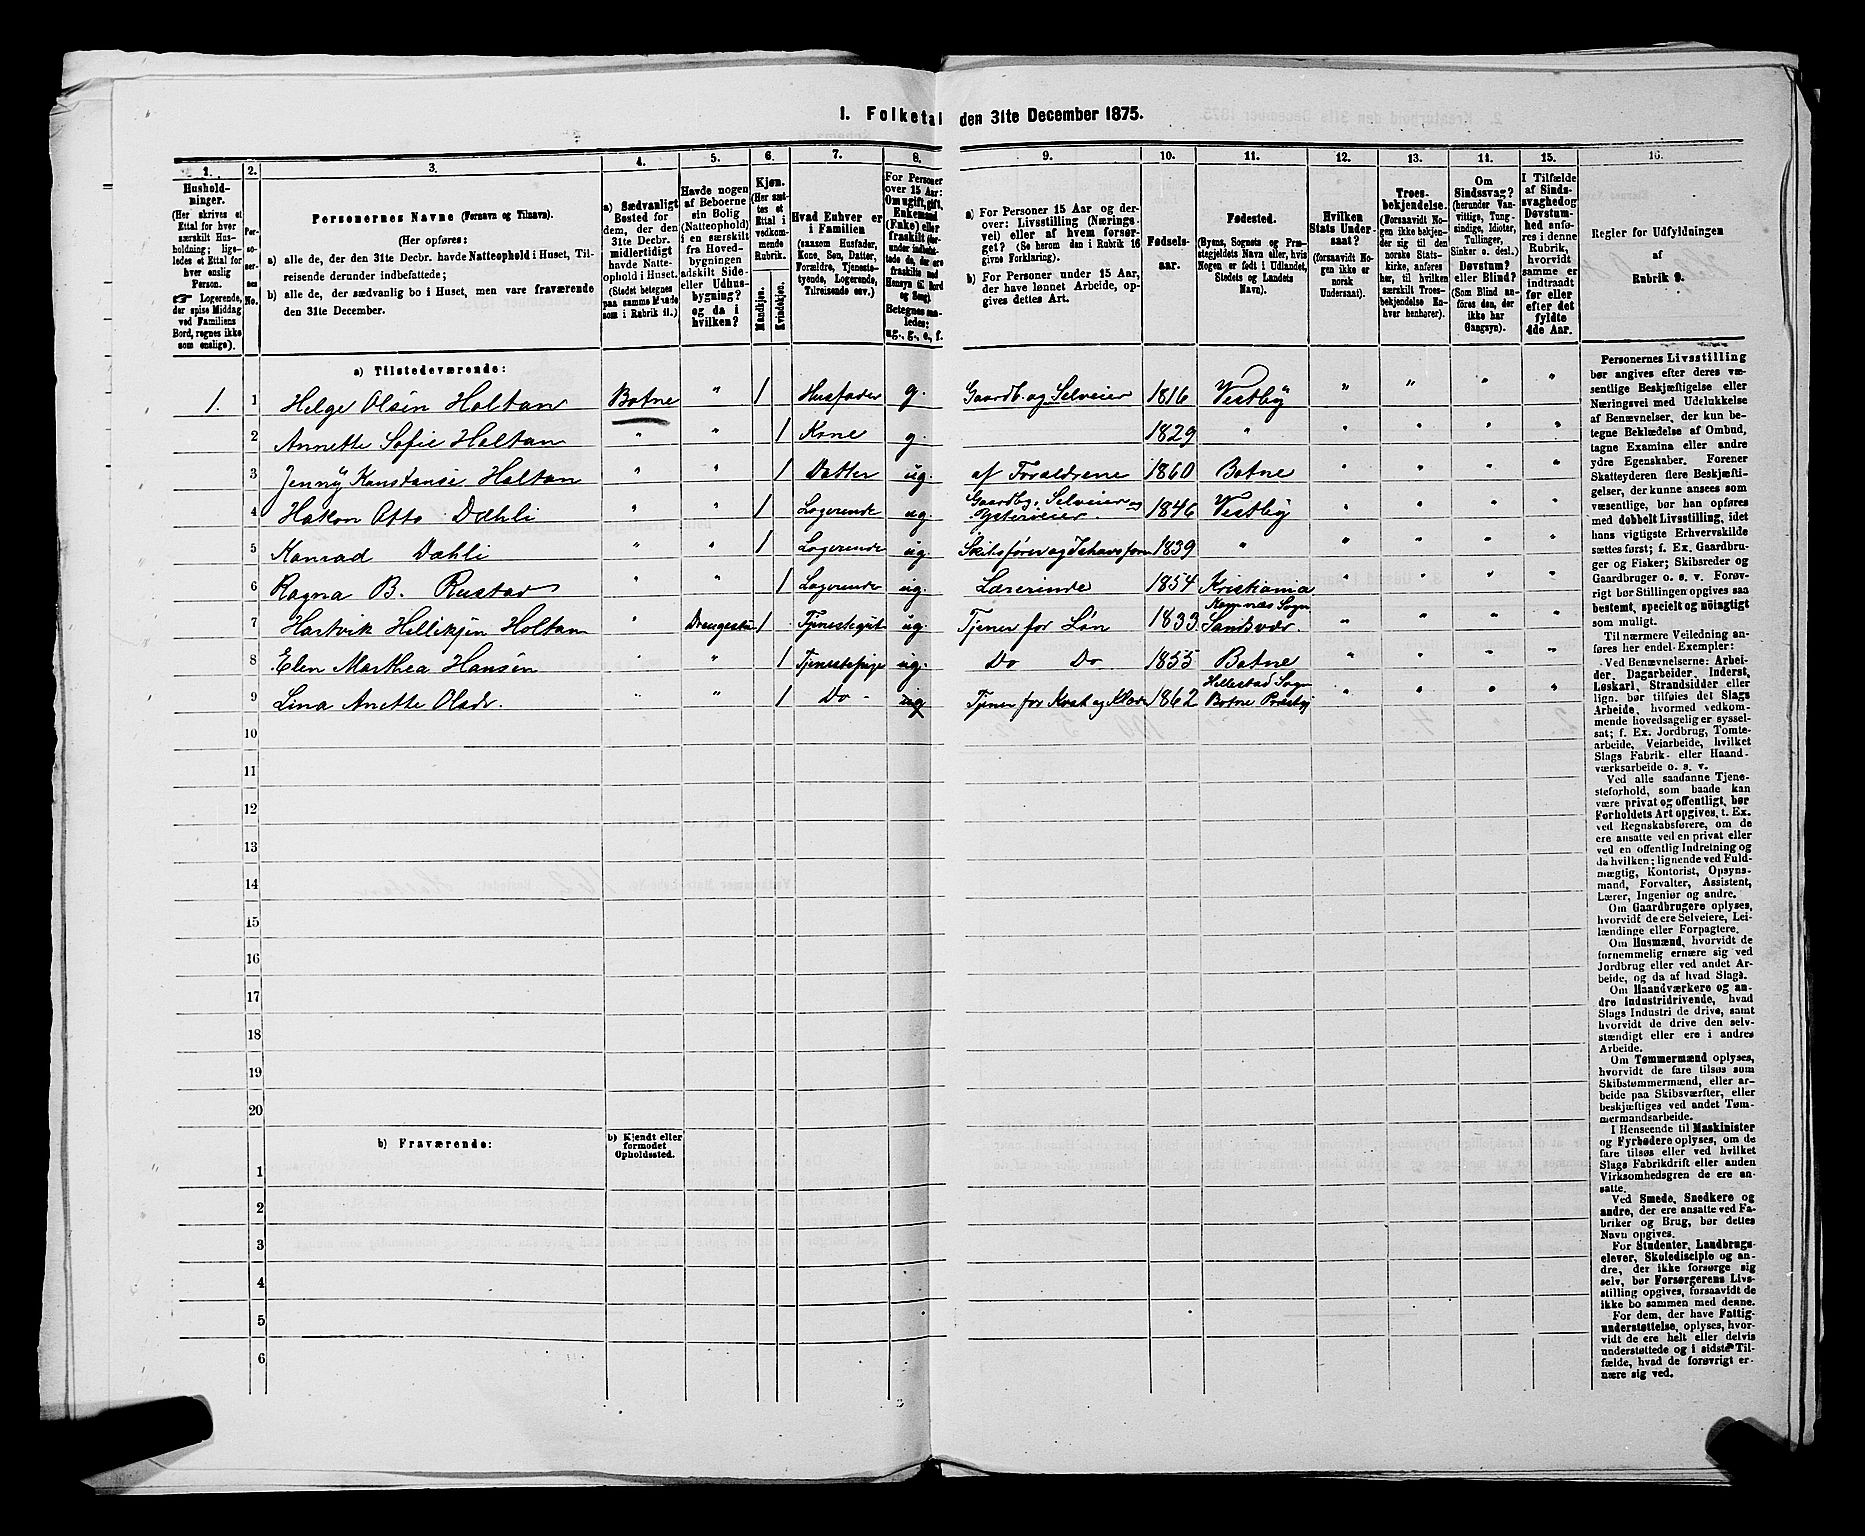 1. Folketal den 31te December 1875.
1.
Hushold-
ninger.
(Her skrives et
Ettal for hver
særskilt Hus-
holdning; lige-
ledes et Ettal for
hver enslig
Person.
☞ Logerende,
der spise Middag
ved Familiens
Bord, regnes ikke
som enslige).
2.
Per-
so-
ner-
nes
No.
3.
Personernes Navne (Fornavn og Tilnavn).
(Her opføres:
a) alle de, der den 31te Decbr. havde Natteophold i Huset, Til-
reisende derunder indbefattede;
b) alle de, der sædvanlig bo i Huset, men vare fraværende
den 31te December.
4.
a) Sædvanligt
Bosted for
dem, der den
31te Decbr.
midlertidigt
havde Natte-
ophold i Huset.
(Stedet betegnes
paa samme Maade
som i Rubrik 11.)
5.
Havde nogen
af Beboerne
sin Bolig
(Natteophold)
i en særskilt
fra Hoved-
bygningen
adskilt Side-
eller Udhus-
bygning? og
og da i
hvilken?
6.
Kjøn.
(Her sæt-
tes et
Ettal i
vedkom-
mende
Rubrik.
Mandkjøn.
Kvindekjøn.
7.
Hvad Enhver er
i Familien
(saasom Husfader,
Kone, Søn, Datter,
Forældre, Tjeneste-
tyende, Logerende,
Tilreisende osv.)
8.
For Personer
over 15 Aar:
Om ugift, gift,
Enkemand
(Enke) eller
fraskilt
Betegnes saa-
ledes:
ug., g., e., f.
9.
a) For Personer 15 Aar og der-
over: Livsstilling (Nærings-
vei) eller af hvem forsør-
get? (Se herom den i Rubrik 16
givne Forklaring).
b) For Personer under 15 Aar,
der have lønnet Arbeide, op-
gives dettes Art.
10.
Fødsels-
aar.
11.
Fødested.
(Byens, Sognets og Præ-
stegjeldets Navn eller, hvis
Nogen er født i Udlandet,
Stedets og Landets
Navn).
12.
Hvilken
Stats Under-
saat?
(forsaavidt No-
gen ikke er
norsk
Undersaat).
13.
Troes-
bekjendelse.
(Forsaavidt No-
gen ikke bekjen-
der sig til den
norske Stats-
kirke, anføres
her, til hvilken
særskilt Troes-
bekjendelse En-
hver henhører).
14.
Om
Sindssvag?
(herunder Van-
vittige, Tung-
sindige, Idioter,
Tullinger,
Sinker o. desl.)
Døvstum?
eller Blind?
(Som Blind an-
føres den, der
ikke har
Gangsyn).
15.
I Tilfælde
af Sinds-
svaghed og
Døvstum-
hed anfø-
res i denne
Rubrik,
hvorvidt
samme er
indtraadt
før eller
efter det
fyldte
4de Aar.
16.
Regler for Udfyldningen
af
Rubrik 9.
a) Tilstedeværende:
1. 1 Helge Olsen Holtan Botne " 1 Husfader g. Gaardb. og Selveier 1816 Vestby " " " "
2 Annette Sofie Holtan " " 1 Kone g. 1829 " " " " "
3 Jenny Konstanse Holtan " " 1 Datter ug. af Forældrene 1860 Botne " " " "
4 Hakon Otto Dæhli " " 1 Logerende ug. Gaardbg. Selveier og Østerseier. 1846 Vestby " " " "
5 Konrad Dæhli " " 1 Logerende ug. Skibsfører og Ishavsfarer 1839 " " " " "
6 Ragna B. Rustad " " 1 Logerende ug. Lærerinde 1854 Kristiania " " " "
7 Hartvik Helliksen Holtan " Drengestu 1 Tjenestegut ug. Tjener for Løn 1833 Komnæs Sogn Sandsvær. " " " "
8 Elen Marthea Hansen " " 1 Tjenestepige ug. Do Do 1855 Botne " " " "
9 Lina Anette Olsdr. " " 1 Do ug Tjener for Kost og Klæder 1862 Hillestad Sogn Botne Præstg " " " "
10
11
12
13
14
15
16
17
18
19
20
b) Fraværende:
b) Kjendt eller
formodet
Opholdssted.
1
2
3
4
5
6
Personernes Livsstilling
bør angives efter deres væ-
sentlige Beskjæftigelse eller
Næringsvei med Udelukkelse
af Benævnelser, der kun be-
tegne Beklædelse af Ombud,
tagne Examina eller andre
ydre Egenskaber. Forener
Skatteyderen flere Beskjæfti-
gelser, der kunne ansees som
væsentlige, bør han opføres
med dobbelt Livsstilling, idet
hans vigtigste Erhvervskilde
sættes først; f. Ex. Gaardbru-
ger og Fisker; Skibsreder og
Gaardbruger o. s. v. Forøv-
rigt bør Stillingen opgives saa
bestemt, specielt og nöiagtigt
som muligt.
Til nærmere Veiledning an-
føres her endel Exempler:
Ved Benævnelserne: Arbei-
der, Dagarbeider, Inderst,
Løskarl, Strandsidder eller
lign. bør tilføies det Slags
Arbeide, hvormed vedkom-
mende hovedsagelig er syssel-
sat; f. Ex. Jordbrug, Tomte-
arbeide, Veiarbeide, hvilket
Slags Fabrik- eller Haand-
værksarbeide o. s. v.
Ved alle saadanne Tjene-
steforhold, som baade kan
være privat og offentligt, bør
Forholdets Art opgives, t. Ex.
ved Regnskabsførere, om de
ere ansatte ved en privat eller
ved en offentlig Indretning og
da hvilken; lignende ved Fuld-
mægtig, Kontorist, Opsyns-
mand, Forvalter, Assistent,
Lærer, Ingeniør og andre.
Om Gaardbrugere oplyses,
hvorvidt de ere Selveiere, Lei-
lændinge eller Forpagtere.
Om Husmænd, hvorvidt de
fornemmelig ernære sig ved
Jordbrug eller ved andet Ar-
beide, og da af hvad Slags.
Om Haandværkere og an-
dre industridrivende, hvad
Slags Industri de drive, samt
hvorvidt de drive den selv-
stændigt eller ere i andres
Arbeide.
Om Tømmermænd oplyses,
hvorvidt de fare tilsøs som
Skibstømmermænd, eller ar-
beide paa Skibsværfter, eller
beskjæftiges ved andet Tøm-
mermandsarbeide.
I Henseende til Maskinister
og Fyrbødere oplyses, om de
fare tilsøs eller ved hvilket
Slags Fabrikdrift eller anden
Virksomhedsgren de ere an-
satte.
Ved Smede, Snedkere og
andre, der ere ansatte ved Fa-
briker og Brug, bør dettes
Navn opgives.
For Studenter, Landbrugs-
elever, Skoledisciple og an-
dre, der ikke forsørge sig
selv, bør Forsørgerens Livs-
stilling opgives, forsaavidt de
ikke bo sammen med denne.
For dem, der have Fattig-
understøttelse, oplyses, hvor-
vidt de ere helt eller delvis
understøttede og i sidste Til-
fælde, hvad de forøvrigt er-
nære sig ved.